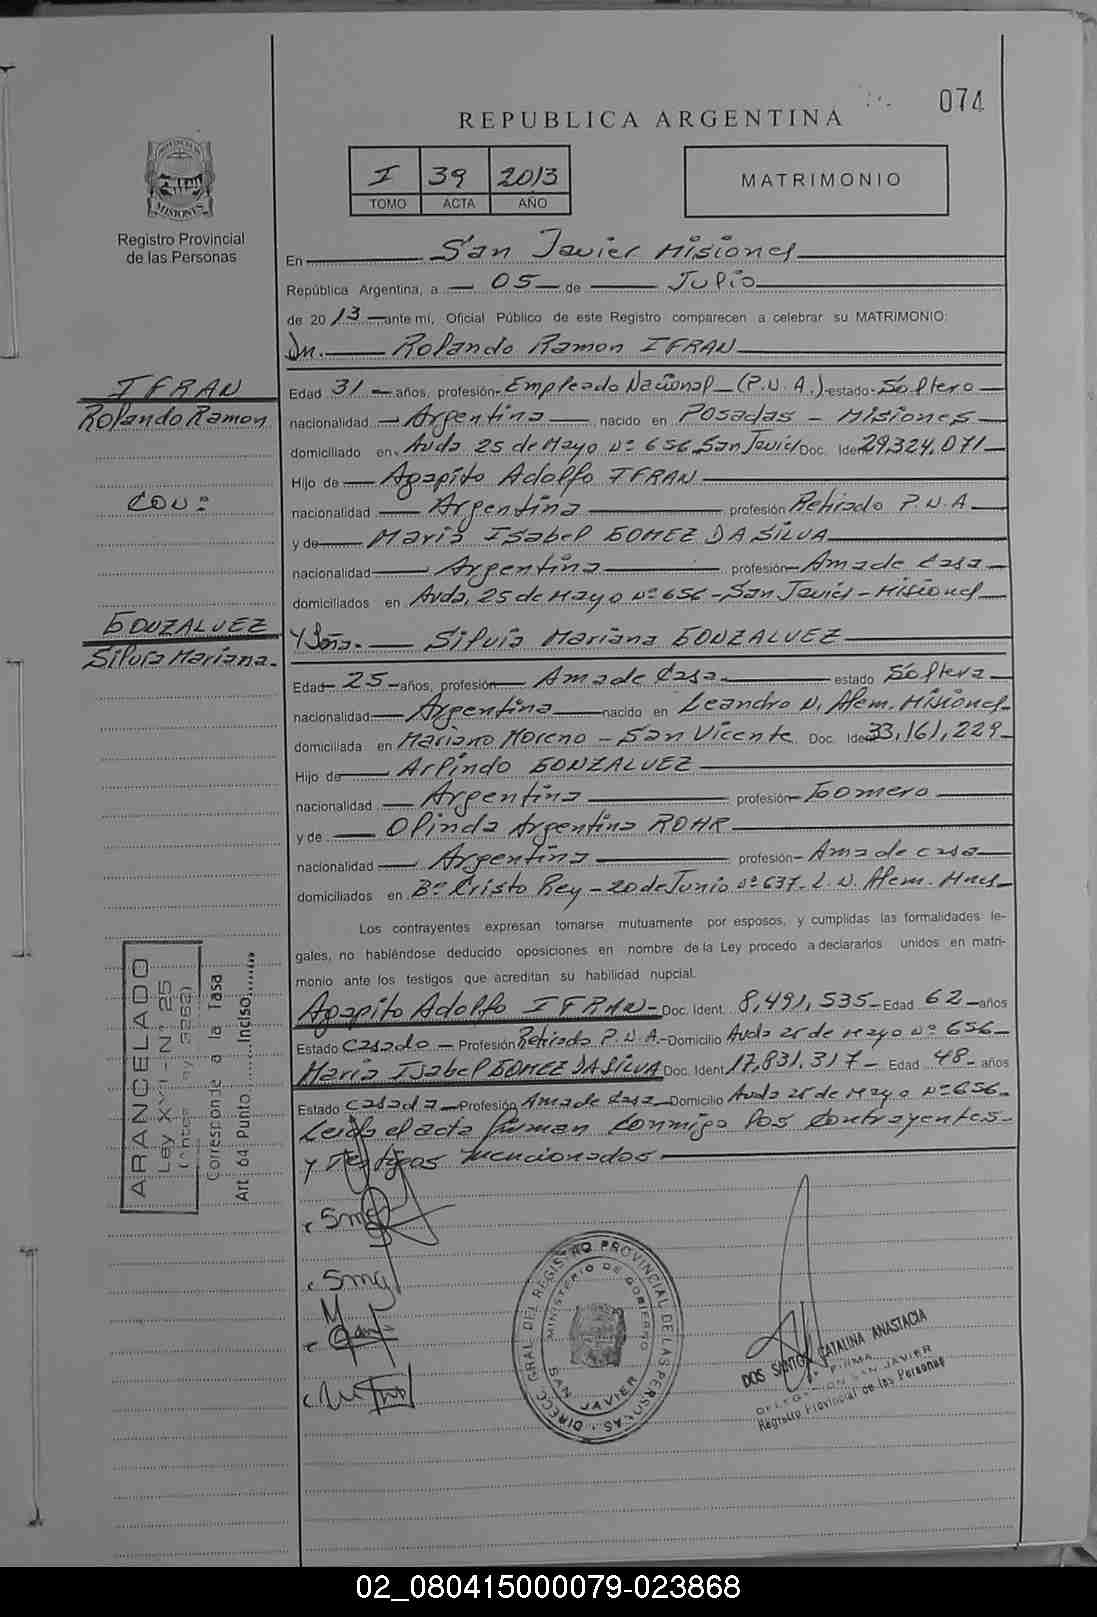 074
REPUBLICA ARGENTINA
PROVINCIA DE
MISIONES
I 39 2013
TOMO ACTA AÑO
MATRIMONIO
Registro Provincial
de las Personas
En San Javier Misiones
República Argentina, a 05 de Julio
de 2013 ante mí, Oficial Público de este Registro comparecen a celebrar su MATRIMONIO:
Dn. Rolando Ramon IFRAN
IFRAN
Rolando Ramon
CON:
GONZALVEZ
Silvia Mariana.
Edad 31 años, profesión Empleado Nacional (P.N.A.) estado Soltero
nacionalidad Argentina nacido en Posadas - Misiones
domiciliado en Avda 25 de Mayo Nº 656 San Javier Doc. Iden 29,324,071
Hijo de Agapito Adolfo IFRAN
nacionalidad Argentina profesión Retirado P.N.A
y de Maria Isabel GOMEZ DA SILVA
nacionalidad Argentina profesión Ama de Casa
domiciliados en Avda, 25 de Mayo Nº 656 - San Javier - Misiones
Y Doña. Silvia Mariana GONZALVEZ
Edad 25 años, profesión Ama de Casa estado Soltera
nacionalidad Argentina nacido en Leandro N. Alem. Misiones
domiciliada en Mariano Moreno - San Vicente Doc. Iden 33,161,229
Hijo de Arlindo GONZALVEZ
nacionalidad Argentina profesión Gomero
y de Olinda Argentina ROHR
nacionalidad Argentina profesión Ama de casa
domiciliados en Bº Cristo Rey - 20 de Junio Nº 637 - L. N. Alem. Mnes
Los contrayentes expresan tomarse mutuamente por esposos, y cumplidas las formalidades le-
gales, no habiéndose deducido oposiciones en nombre de la Ley procedo a declararlos unidos en matri-
monio ante los testigos que acreditan su habilidad nupcial.
Agapito Adolfo IFRAN - Doc. Ident. 8,491,535 - Edad 62 años
Estado Casado - Profesión Retirado P.N.A. - Domicilio Avda 25 de Mayo Nº 656
Maria Isabel GOMEZ DA SILVA Doc. Ident. 17,831,317 - Edad 48 años
Estado Casada - Profesión Ama de Casa - Domicilio Avda 25 de Mayo Nº 656
Leida el acta firman conmigo los Contrayentes
y Testigos mencionados
ARANCELADO
Ley XVII - Nº 25
Corresponde a la Tasa
Art. 64 Punto......Inciso......
DIRECC. GRAL. DEL REGISTRO PROVINCIAL DE LAS PERSONAS
MINISTERIO DE GOBIERNO
SAN JAVIER
DOS SANTOS CATALINA ANASTACIA
FIRMA
DELEGACION SAN JAVIER
Registro Provincial de las Personas
02_080415000079-023868